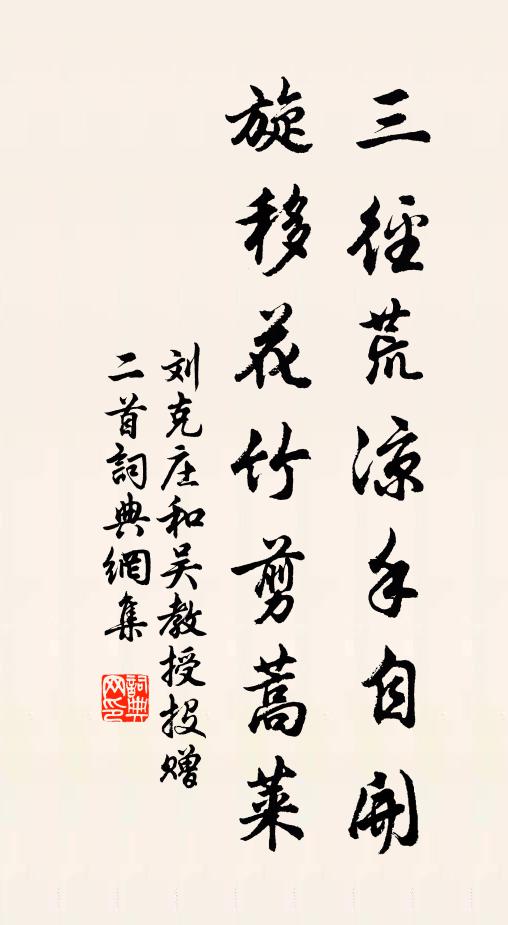 三徑荒涼手自開
旋移花竹剪蒿萊
刘克庄和吴教授投赠
二首詞典網集
詞典
网印